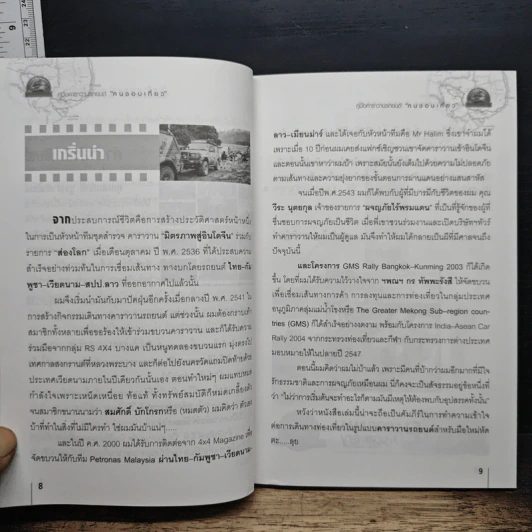 คู่มือคาราวานรถยนต์ "คนชอบเที่ยว"
เกริ่นนำ
จากประสบการณ์ชีวิตคือการสร้างประวัติศาสตร์หน้าหนึ่ง
ในการเป็นหัวหน้าทีมชุดสำรวจ คาราวาน "มิตรภาพสู่อินโดจีน" ร่วมกับ
รายการ "ส่องโลก" เมื่อเดือนตุลาคม ปี พ.ศ. 2536 ที่ได้ประสบความ
สำเร็จอย่างท่วมท้นในการเชื่อมเส้นทาง ทางบกโดยรถยนต์ ไทย–กัม
พูชา–เวียดนาม–สปป.ลาว ที่ออกอากาศไปแล้วนั้น
ผมจึงเริ่มนำมันกับมาปัดฝุ่นอีกครั้งเมื่อกลางปี พ.ศ. 2541 ใน
การสร้างกิจกรรมเดินทางคาราวานรถยนต์ แต่ช่วงนั้น ผมต้องกราบเท้า
สมาชิกทั้งหลายเพื่อขอร้องให้เข้าร่วมขบวนคาราวาน และก็ได้รับความ
ร่วมมือจากกลุ่ม RS 4X4 บางแค เป็นหนูทดลองขบวนแรก มุ่งตรงไป
เทศกาลสงกรานต์ที่หลวงพระบาง และก็ต่อไปยังนครวัดแถมปิดท้ายด้วย
ประเทศเวียดนามภายในปีเดียวกันนั้นเอง ตอนทำใหม่ๆ ผมแทบหมด
กำลังใจเพราะเหน็ดเหนื่อย ท้อแท้ ทั้งทรัพย์สมบัติก็หมดเกลี้ยงตัว
จนสมาชิกขนานนามว่า สมศักดิ์ บักโกรก หรือ (หมดตัว) ผมคิดว่า ตัวเอง
บ้าที่ทำในสิ่งที่ไม่มีใครทำ ใช่ผมมันบ้าแน่ๆ.....
และในปี ค.ศ. 2000 ผมได้รับการติดต่อจาก 4x4 Magazine เพื่อ
จัดขบวนให้กับทีม Petronas Malaysia ผ่านไทย–กัมพูชา–เวียดนาม–
8
คู่มือคาราวานรถยนต์ "คนชอบเที่ยว"
ลาว–เมียนม่าร์ และได้เจอกับหัวหน้าทีมคือ Mr Halim ซึ่งเขาจำผมได้
เพราะเมื่อ 10 ปีก่อนผมเคยส่งแฟกซ์เชิญชวนเขาจัดคาราวานเข้าอินโดจีน
และตอนนั้นเขาหาว่าผมบ้า เพราะสมัยนั้นยังเต็มไปด้วยความไม่ปลอดภัย
ตามเส้นทางและความยุ่งยากของขั้นตอนการผ่านแดนอย่างแสนสาหัส
จนเมื่อปีพ.ศ.2543 ผมก็ได้พบกับผู้ที่มีบารมีกับชีวิตของผม คุณ
วีระ นุตยกุล เจ้าของรายการ "ผจญภัยไร้พรมแดน" ที่เป็นที่รู้จักของผู้ที่
ชื่นชอบการผจญภัยเป็นชีวิต เมื่อพี่เขาชวนร่วมงานและเปิดบริษัทฯทัวร์
ทำคาราวานให้ผมเป็นผู้ดูแล มันจึงทำให้ผมได้กลายเป็นผีที่มีศาลจนถึง
ปัจจุบันนี้
และโครงการ GMS Rally Bangkok–Kunming 2003 ก็ได้เกิด
ขึ้น โดยที่ผมได้รับความไว้วางใจจาก ฯพณฯ กร ทัพพะรังสี ให้จัดขบวน
เพื่อเชื่อมเส้นทางการค้า การลงทุนและการท่องเที่ยวในกลุ่มประเทศ
อนุภูมิภาคลุ่มแม่น้ำโขงหรือ The Greater Mekong Sub–region coun-
tries (GMS) ก็ได้สำเร็จอย่างงดงาม พร้อมกับโครงการ India–Asean Car
Rally 2004 จากกระทรวงท่องเที่ยวและกีฬา กับกระทรวงการต่างประเทศ
มอบหมายให้ในปลายปี 2547
ตอนนี้ผมคิดว่าผมไม่บ้าแล้ว เพราะมีคนที่บ้ากว่าผมอีกมากที่มีใจ
รักธรรมชาติและการผจญภัยเหมือนผม นี่ก็คงจะเป็นสัจธรรมอยู่ข้อหนึ่งที่
ว่า "ไม่ว่าการเริ่มต้นจะทำอะไรก็ตามมันมีเหตุให้ต้องพบกับอุปสรรคทั้งนั้น"
หวังว่าหนังสือเล่มนี้น่าจะถือเป็นคัมภีร์ในการทำความเข้าใจ
ต่อการเดินทางท่องเที่ยวในรูปแบบคาราวานรถยนต์สำหรับมือใหม่หัด
คะ.....ลุย
9